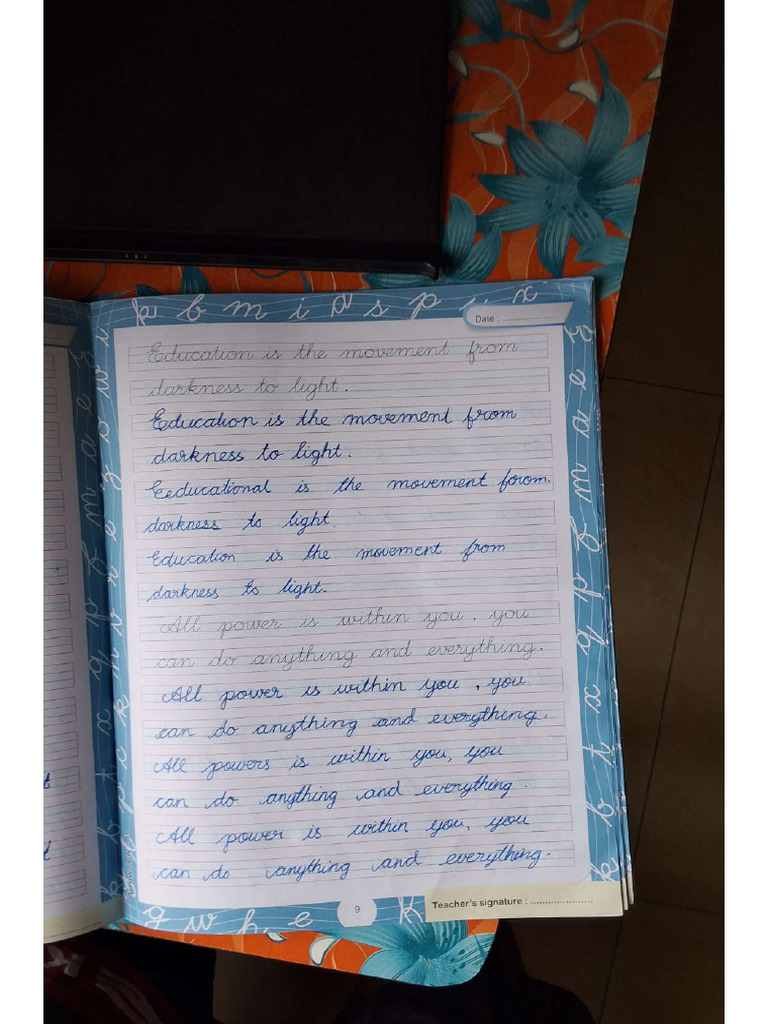 k b m i x s p u x
Date : ....................
Education is the movement from
darkness to light.
Education is the movement from
darkness to light.
Eeducational is the movement forom.
darkness to light.
Education is the movement from
darkness to light.
All power is within you, you
can do anything and everything.
All power is within you, you
can do anything and everything.
All powers is within you, you
can do anything and everything.
All power is within you, you
can do anything and everything.
9
Teacher's signature : ....................
g w h e k